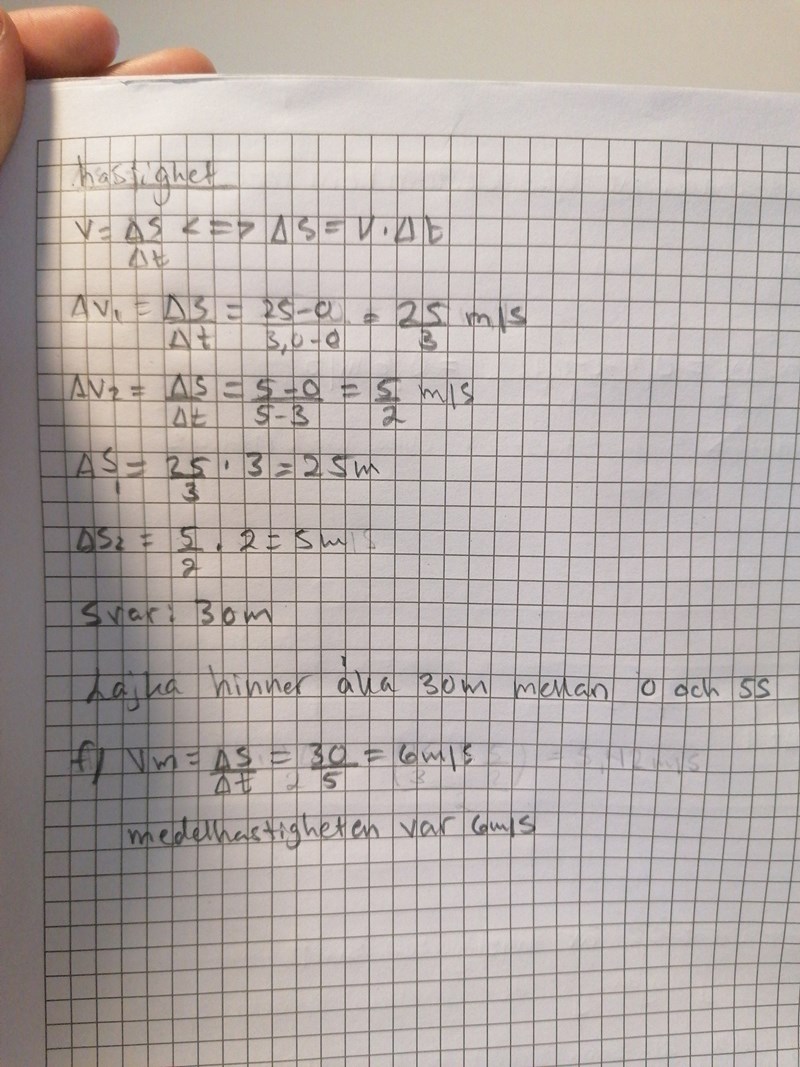 hastighet
V = ΔS/Δt <=> ΔS = V · Δt
ΔV₁ = ΔS/Δt = 25-0/3,0-0 = 25/3 m/s
ΔV₂ = ΔS/Δt = 5-0/5-3 = 5/2 m/s
ΔS₁ = 25/3 · 3 = 25m
ΔS₂ = 5/2 · 2 = 5m
Svar: 30m
Lajka hinner åka 30m mellan 0 och 5s
f) Vm = ΔS/Δt = 30/5 = 6m/s
medelhastigheten var 6m/s